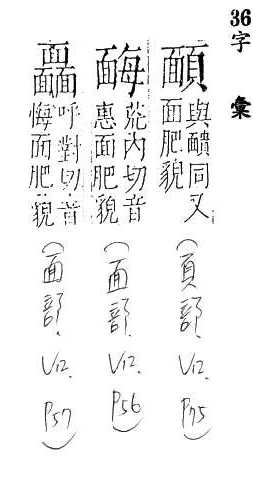 36字彙
與靧同又
面肥貌
(頁部. V12. P75)
荒內切音
惠面肥貌
(面部. V12. P56)
呼對切音
悔面肥貌
(面部. V12. P57)